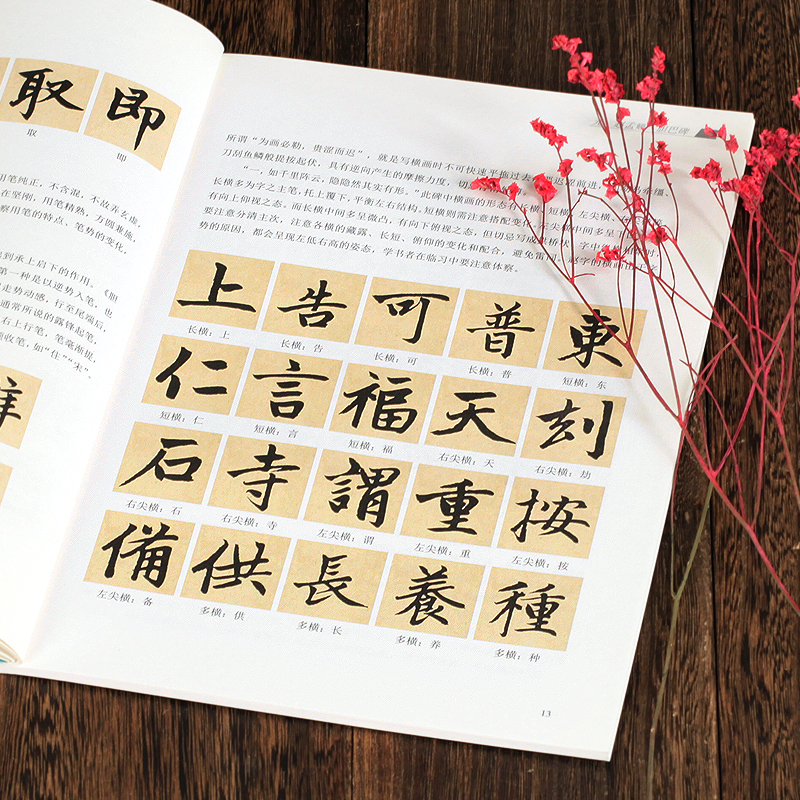 取
即
取
即
用笔纯正，不含混，不故弄玄虚
在坚刚，用笔精熟，方圆兼施，
察用笔的特点、笔势的变化，
到承上启下的作用。《胆
第一种是以逆势入笔，也
走势动感，行至尾端后，
通常所说的露锋起笔，
右上行笔，笔毫渐提，
顿收笔，如“住”“末”，
所谓“为画必勒，贵涩而迟”，就是写横画时不可快速平拖过去，
刀刮鱼鳞般提按起伏，具有逆向产生的摩擦力度，
“一，如千里阵云，隐隐然其实有形。”此碑中横画的形态有长横、短横、左尖横、
长横多为字之主笔，托上覆下，平衡左右结构。短横则需注意搭配变化。
有向上仰视之态。而长横中间多呈微凸，有向下俯视之态，但切忌写成拱桥状。
要注意分清主次，注意各横的藏露、长短、俯仰的变化和配合，避免雷同。赵字的横画由于
势的原因，都会呈现左低右高的姿态，学书者在临习中要注意体察。
上 告 可 普 東
长横：上 长横：告 长横：可 长横：普 短横：东
仁 言 福 天 刻
短横：仁 短横：言 短横：福 右尖横：天 右尖横：劫
石 寺 謂 重 按
右尖横：石 右尖横：寺 左尖横：谓 左尖横：重 左尖横：按
備 供 長 養 種
左尖横：备 多横：供 多横：长 多横：养 多横：种
13